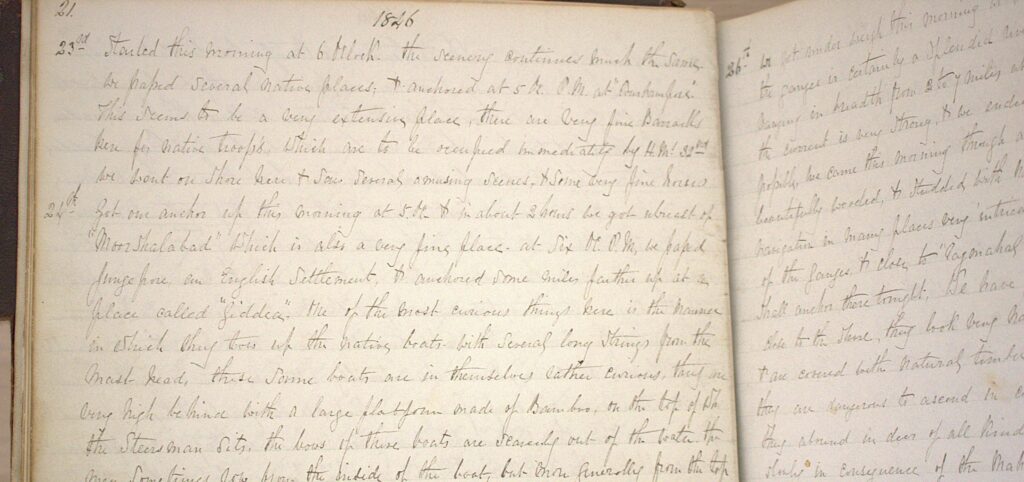 21.
1846
23rd Started this morning at 6 Oclock. the scenery continues much the same
we passed several native places, & anchored at 5 Oc. P.M. at
This seems to be a very extensive place, there are very fine Barracks
here for native troops, which are to be occupied immediately by H.M's
we went on shore here & saw several amusing scenes, & some very fine horses
24th Got our anchor up this morning at 5 Oc. & in about 2 hours we got abreast of
"Moorshalabad" which is also a very fine place. at six Oc. P.M. we passed
Jungepore, an English settlement, & anchored some miles further up at a
place called "Giddea". One of the most curious things here is the manner
in which they tow up the native boats with several long strings from the
mast head, these same boats are in themselves rather curious, they are
very high behind with a large platform made of Bamboo, on the top of
the steersman sits, the bows of these boats are scarcely out of the water the
men sometimes row from the inside of the boat, but more generally from the top
26th We got under weigh this morning
the ganges is certainly a splendid
ranging in breadth from 2 to 7 miles
the current is very strong, & we
possibly, we came this morning through
beautifully wooded, & studded with
navigation in many places very
of the Ganges & close to "Ragmahal
shall anchor there tonight, We have
close to the shore, they look very
& are covered with natural timber
they are dangerous to ascend in
they abound in deer of all kinds
in consequence of the